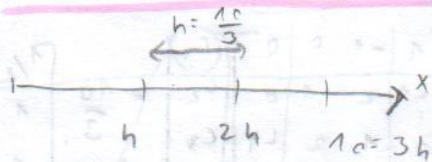 h = 10/3
x
h 2h 10 = 3h